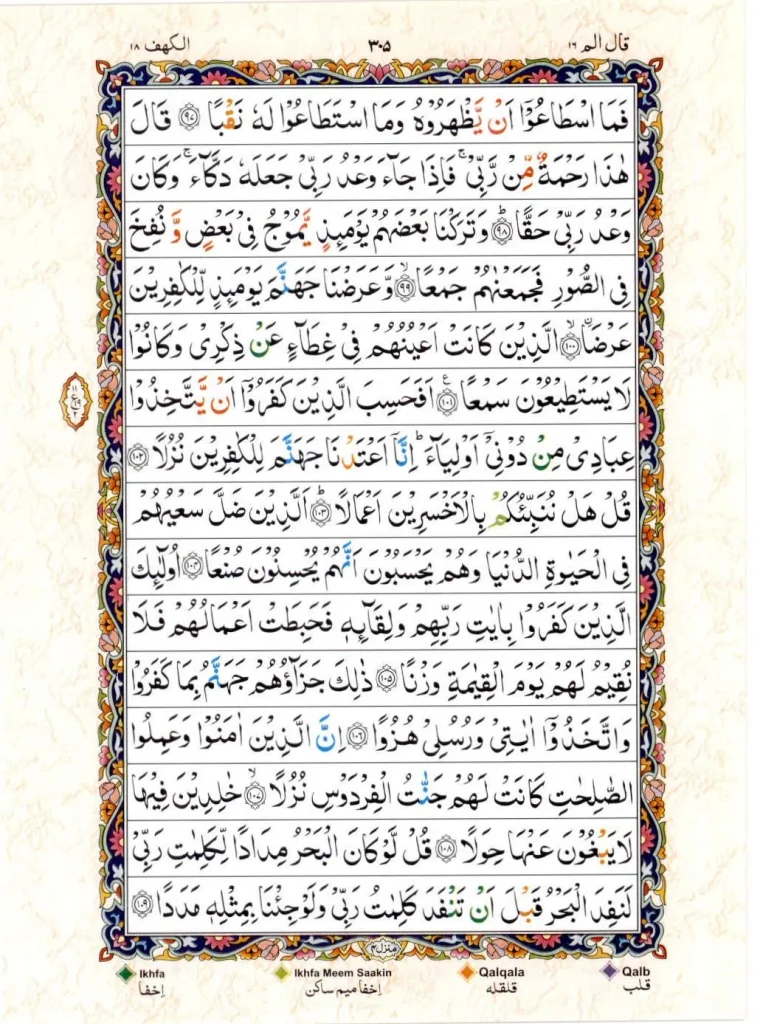 قال الم ۱۶
۳۰۵
الکهف ۱۸
فَمَا اسْطَاعُوْۤا اَنْ يَّظْهَرُوْهُ وَمَا اسْتَطَاعُوْا لَهٗ نَقْبًا ﴿۹۷﴾ قَالَ
هٰذَا رَحْمَةٌ مِّنْ رَّبِّیْ ۚ فَاِذَا جَآءَ وَعْدُ رَبِّیْ جَعَلَهٗ دَكَّآءَ ۚ وَكَانَ
وَعْدُ رَبِّیْ حَقًّا ؕ﴿۹۸﴾ وَتَرَكْنَا بَعْضَهُمْ يَوْمَئِذٍ يَّمُوْجُ فِیْ بَعْضٍ وَّ نُفِخَ
فِی الصُّوْرِ فَجَمَعْنٰهُمْ جَمْعًا ۙ﴿۹۹﴾ وَّعَرَضْنَا جَهَنَّمَ يَوْمَئِذٍ لِّلْكٰفِرِيْنَ
عَرْضَا ۙ﴿۱۰۰﴾ الَّذِيْنَ كَانَتْ اَعْيُنُهُمْ فِیْ غِطَآءٍ عَنْ ذِكْرِیْ وَكَانُوْا
لَا يَسْتَطِيْعُوْنَ سَمْعًا ﴿۱۰۱﴾ ع اَفَحَسِبَ الَّذِيْنَ كَفَرُوْۤا اَنْ يَّتَّخِذُوْا
۱۱
ع ۱۹
۲
عِبَادِیْ مِنْ دُوْنِیْۤ اَوْلِيَآءَ ؕ اِنَّاۤ اَعْتَدْنَا جَهَنَّمَ لِلْكٰفِرِيْنَ نُزُلًا ﴿۱۰۲﴾
قُلْ هَلْ نُنَبِّئُكُمْ بِالْاَخْسَرِيْنَ اَعْمَالًا ؕ﴿۱۰۳﴾ اَلَّذِيْنَ ضَلَّ سَعْيُهُمْ
فِی الْحَيٰوةِ الدُّنْيَا وَهُمْ يَحْسَبُوْنَ اَنَّهُمْ يُحْسِنُوْنَ صُنْعًا ﴿۱۰۴﴾ اُولٰٓئِكَ
الَّذِيْنَ كَفَرُوْا بِاٰيٰتِ رَبِّهِمْ وَلِقَآئِهٖ فَحَبِطَتْ اَعْمَالُهُمْ فَلَا
نُقِيْمُ لَهُمْ يَوْمَ الْقِيٰمَةِ وَزْنًا ﴿۱۰۵﴾ ذٰلِكَ جَزَآؤُهُمْ جَهَنَّمُ بِمَا كَفَرُوْا
وَاتَّخَذُوْۤا اٰيٰتِیْ وَرُسُلِیْ هُزُوًا ﴿۱۰۶﴾ اِنَّ الَّذِيْنَ اٰمَنُوْا وَعَمِلُوا
الصّٰلِحٰتِ كَانَتْ لَهُمْ جَنّٰتُ الْفِرْدَوْسِ نُزُلًا ۙ﴿۱۰۷﴾ خٰلِدِيْنَ فِيْهَا
لَا يَبْغُوْنَ عَنْهَا حِوَلًا ﴿۱۰۸﴾ قُلْ لَّوْ كَانَ الْبَحْرُ مِدَادًا لِّكَلِمٰتِ رَبِّیْ
لَنَفِدَ الْبَحْرُ قَبْلَ اَنْ تَنْفَدَ كَلِمٰتُ رَبِّیْ وَلَوْ جِئْنَا بِمِثْلِهٖ مَدَدًا ﴿۱۰۹﴾
منزل ۴
Ikhfa
اِخفا
Ikhfa Meem Saakin
اِخفا میم ساکن
Qalqala
قلقله
Qalb
قلب